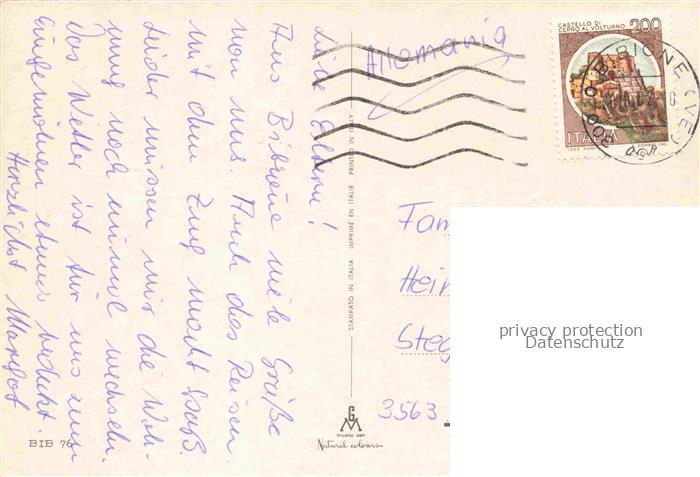 Liebe Eltern!
Aus Bibione viele Grüße
von uns. Auch das Reisen
mit dem Zug macht Spaß.
Leider müssen wir die Woh-
nung noch einmal wechseln.
Das Wetter ist für uns zum
Eingewöhnen etwas bedeckt.
Herzlichst Margot
BIB 76
STAMPATO IN ITALIA IMPRIMÉ EN ITALIE PRINTED IN ITALY
GM
MILANO
Natural colours
Allemania
CASTELLO DI
CERRO AL VOLTURNO
200
ITALIA
BIBIONE (VE)
Fam
Hein
Steg
3563
privacy protection
Datenschutz